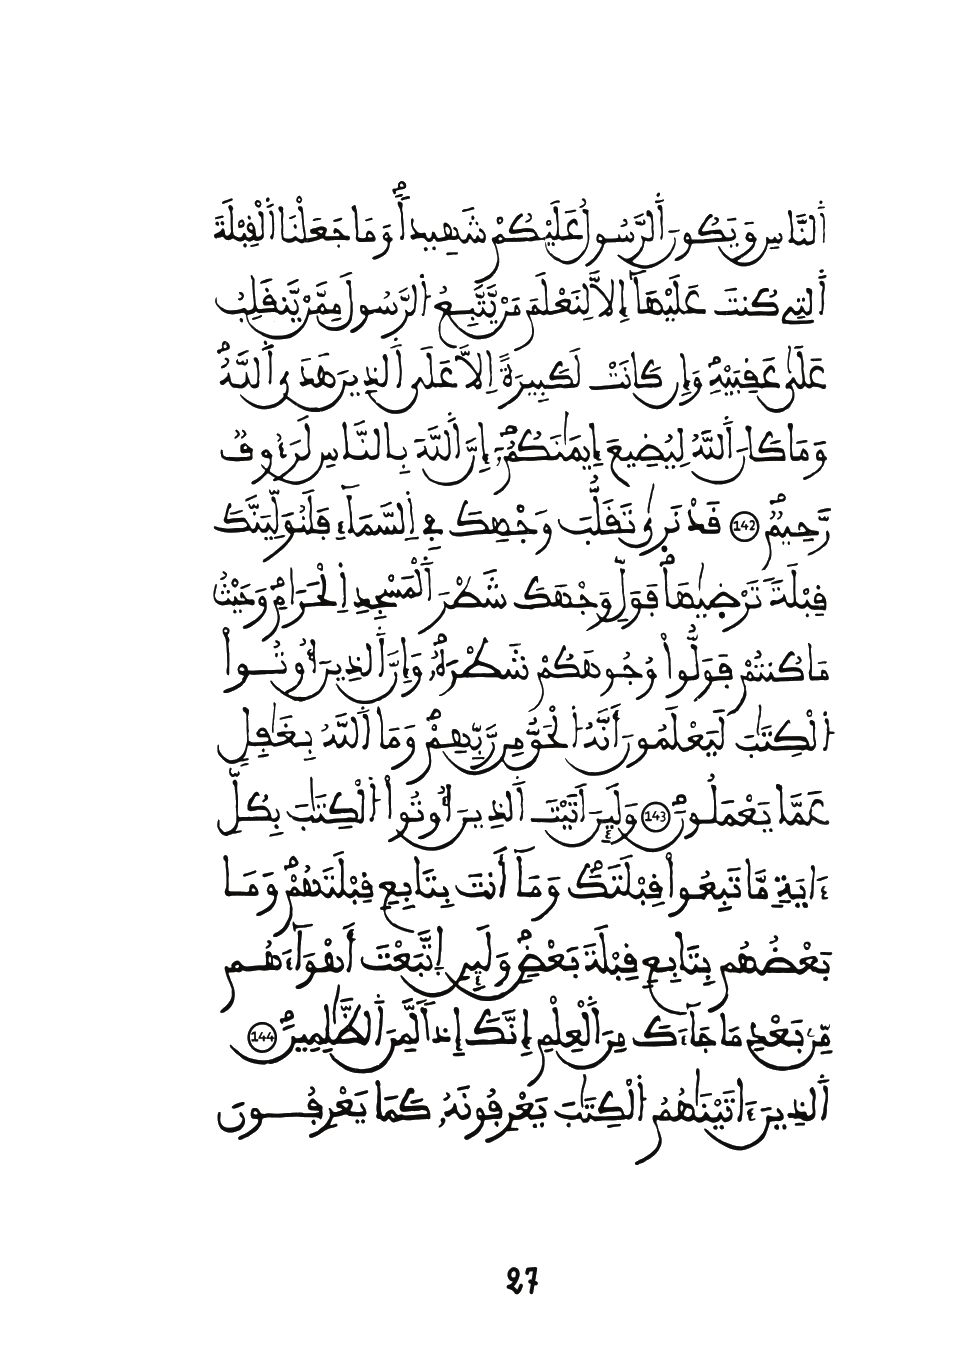 اَ۬لنَّاسِ وَيَكُونَ اَ۬لرَّسُولُ عَلَيْكُمْ شَهِيداٗ وَمَا جَعَلْنَا اَ۬لْقِبْلَةَ
اَ۬لتِے كُنتَ عَلَيْهَآ إِلَّا لِنَعْلَمَ مَنْ يَّتَّبِعُ اُ۬لرَّسُولَ مِمَّنْ يَّنقَلِبُ
عَلَىٰ عَقِبَيْهِۖ وَإِن كَانَتْ لَكَبِيرَةً اِلَّا عَلَى اَ۬لذِينَ هَدَى اَ۬للَّهُۖ
وَمَا كَانَ اَ۬للَّهُ لِيُضِيعَ إِيمَٰنَكُمُۥٓۖ إِنَّ اَ۬للَّهَ بِالنَّاسِ لَرَءُوفٞ
رَّحِيمٞۖ 142 قَدْ نَر۪ىٰ تَقَلُّبَ وَجْهِكَ فِے اِ۬لسَّمَآءِ فَلَنُوَلِّيَنَّكَ
قِبْلَةٗ تَرْض۪يٰهَاۖ فَوَلِّ وَجْهَكَ شَطْرَ اَ۬لْمَسْجِدِ اِ۬لْحَرَامِۖ وَحَيْثُ
مَا كُنتُمْ فَوَلُّواْ وُجُوهَكُمْ شَطْرَهُۥۖ وَإِنَّ اَ۬لذِينَ أُوتُواْ
اُ۬لْكِتَٰبَ لَيَعْلَمُونَ أَنَّهُ اُ۬لْحَقُّ مِن رَّبِّهِمْۖ وَمَا اَ۬للَّهُ بِغَٰفِلٍ
عَمَّا يَعْمَلُونَۖ 143 وَلَئِنَ اَتَيْتَ اَ۬لذِينَ أُوتُواْ اُ۬لْكِتَٰبَ بِكُلِّ
ءَايَةٖ مَّا تَبِعُواْ قِبْلَتَكَۖ وَمَآ أَنتَ بِتَابِعٖ قِبْلَتَهُمْۖ وَمَا
بَعْضُهُم بِتَابِعٖ قِبْلَةَ بَعْضٖۖ وَلَئِنِ اِ۪تَّبَعْتَ أَهْوَآءَهُم
مِّنۢ بَعْدِ مَا جَآءَكَ مِنَ اَ۬لْعِلْمِ إِنَّكَ إِذاٗ لَّمِنَ اَ۬لظَّٰلِمِينَۖ 144
اَ۬لذِينَ ءَاتَيْنَٰهُمُ اُ۬لْكِتَٰبَ يَعْرِفُونَهُۥ كَمَا يَعْرِفُونَ
27